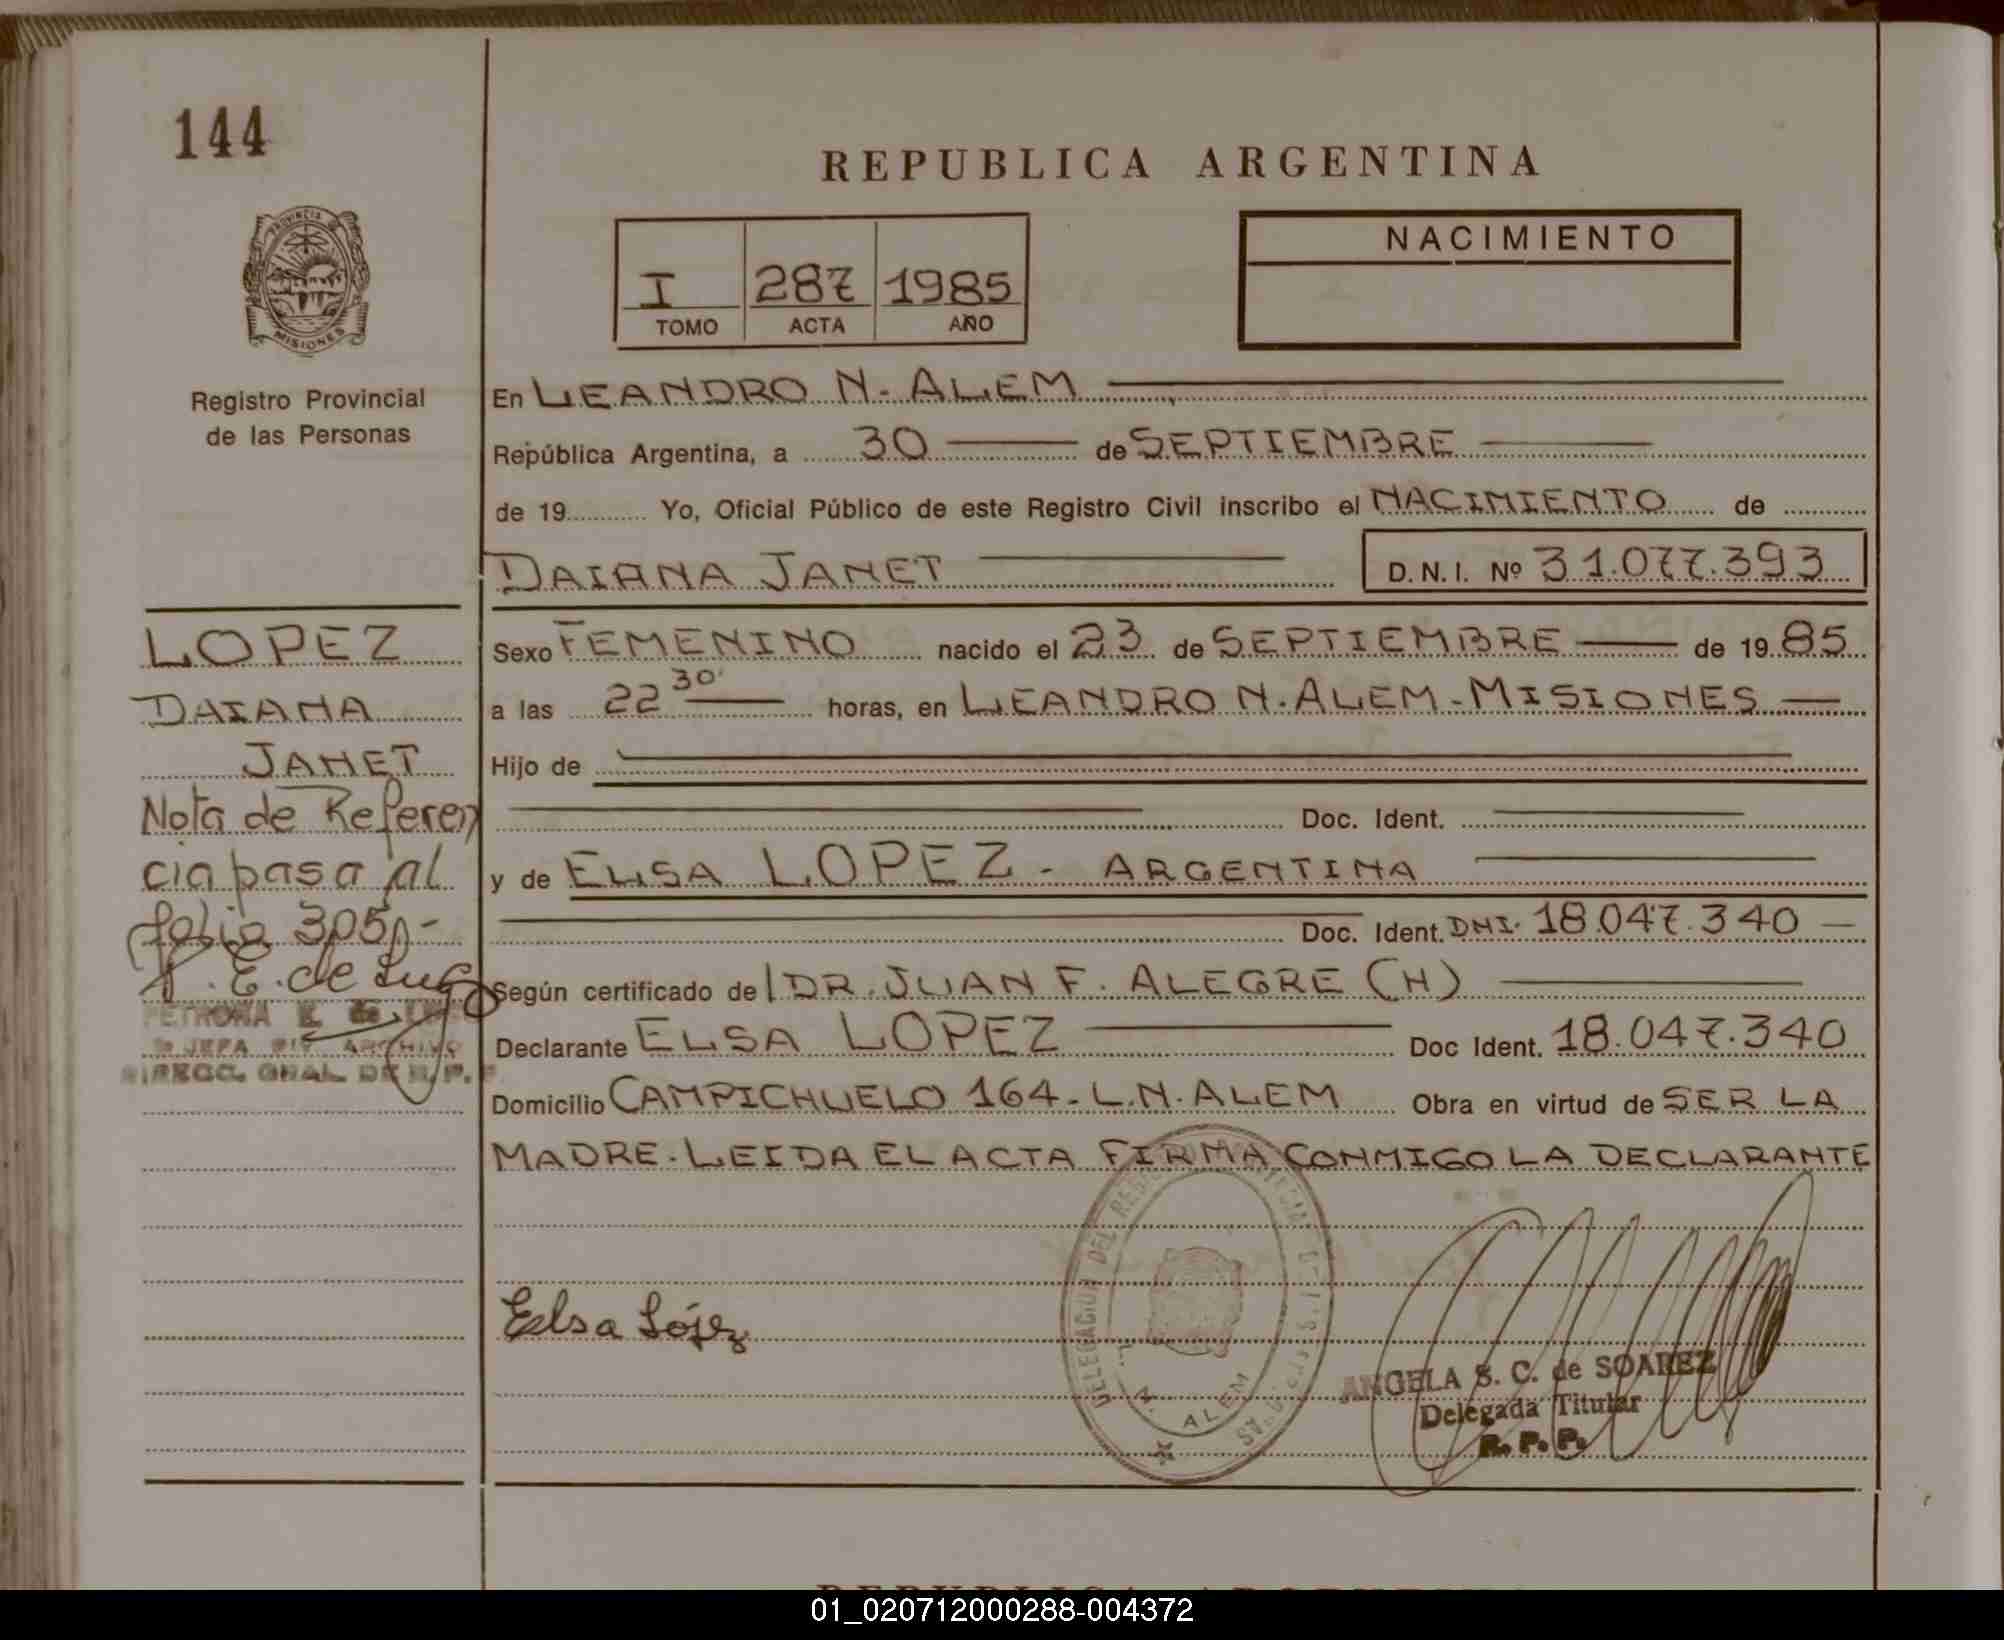 144
REPUBLICA ARGENTINA
PROVINCIA
MISIONES
Registro Provincial
de las Personas
I 287 1985
TOMO ACTA AÑO
NACIMIENTO
En LEANDRO N. ALEM
República Argentina, a 30 de SEPTIEMBRE
de 19 Yo, Oficial Público de este Registro Civil inscribo el NACIMIENTO de
DAIANA JANET D.N.I. Nº 31.077.393
LOPEZ
DAIANA
JANET
Nota de Referen
cia pasa al
folio 305,-
P. E. de Lugo
PETRONA E. de
JEFA ARCHIVO
DIRECC. GRAL. DE R. P.
Sexo FEMENINO nacido el 23 de SEPTIEMBRE de 19 85
a las 22 30' horas, en LEANDRO N. ALEM - MISIONES
Hijo de
Doc. Ident.
y de ELSA LOPEZ - ARGENTINA
Doc. Ident. DNI. 18.047.340
Según certificado de DR. JUAN F. ALEGRE (H)
Declarante ELSA LOPEZ Doc Ident. 18.047.340
Domicilio CAMPICHUELO 164 - L.N. ALEM Obra en virtud de SER LA
MADRE. LEIDA EL ACTA FIRMA CONMIGO LA DECLARANTE
Elsa López
DELEGACION DEL
L. N. ALEM
ANGELA S. C. de SOAREZ
Delegada Titular
R. P. P.
01_020712000288-004372